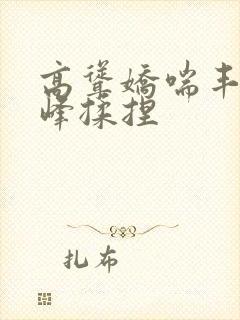 高聳嬌喘丰
峰揉捏
扎布